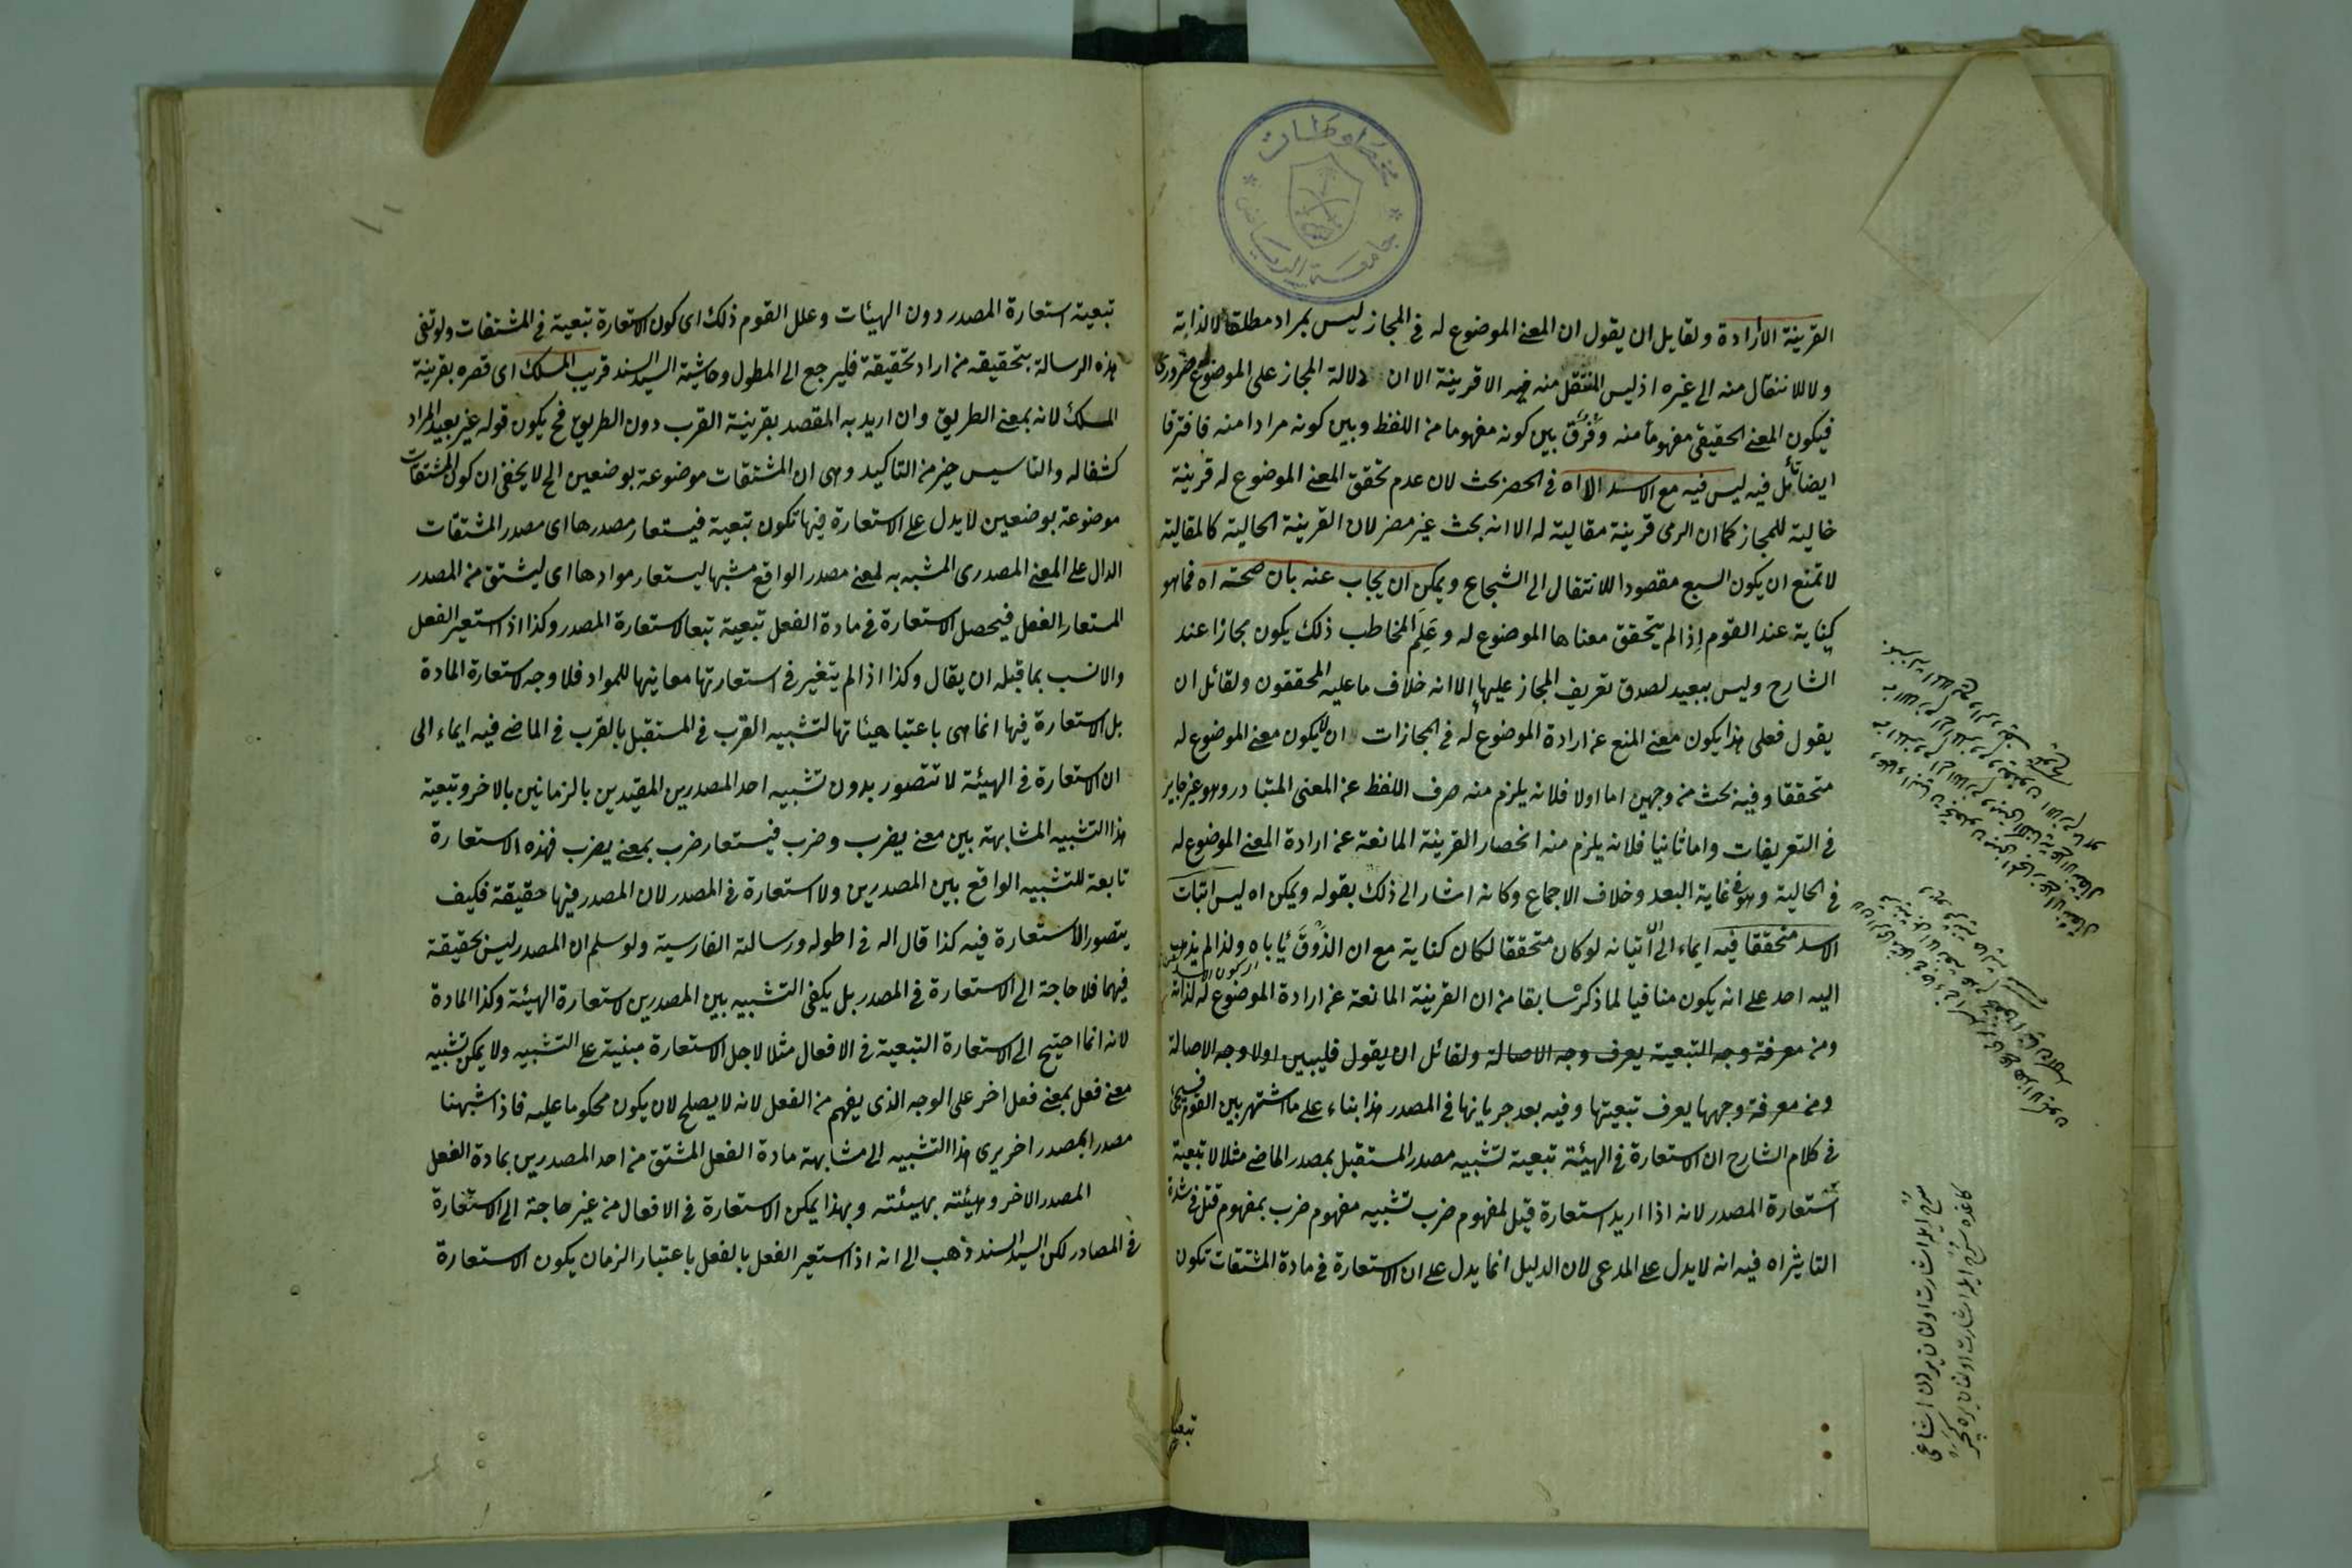 القرينة الارادة ولقايل ان يقول ان المعنى الموضوع له في المجاز ليس بمراد مطلقا لا لذاته
ولا للانتقال منه الى غيره اذ ليس المنتقل منه فيه الا قرينة الا ان دلالة المجاز على الموضوع ضروري
فيكون المعنى الحقيقي مفهوما منه وفرق بين كونه مفهوما من اللفظ وبين كونه مرادا منه فافترقا
ايضا تأمل فيه ليس فيه مع الاسد الا اه في الحصر بحث لان عدم تحقق المعنى الموضوع له قرينة
حالية للمجاز كما ان الرمي قرينة مقالية له الا انه بحث غير مضر لان القرينة الحالية كالمقالية
لا تمنع ان يكون السبع مقصودا للانتقال الى الشجاع ويمكن ان يجاب عنه بان صحته اه فما هو
كناية عند القوم اذا لم يتحقق معناها الموضوع له وعلم المخاطب ذلك يكون مجازا عند
الشارح وليس ببعيد لصدق تعريف المجاز عليها الا انه خلاف ما عليه المحققون ولقائل ان
يقول فعلى هذا يكون معنى المنع عن ارادة الموضوع له في المجازات ان لا يكون معنى الموضوع له
متحققا وفيه بحث من وجهين اما اولا فلانه يلزم منه صرف اللفظ عن المعنى المتبادر وهو غير جايز
في التعريفات واما ثانيا فلانه يلزم منه انحصار القرينة المانعة عن ارادة المعنى الموضوع له
في الحالية وهو في غاية البعد وخلاف الاجماع وكانه اشار الى ذلك بقوله ويمكن اه ليس اثبات
الاسد متحققا فيه ايماء الى ان اتيانه لو كان متحققا لكان كناية مع ان الذوق يأباه ولذا لم يذهب
اليه احد على انه يكون منافيا لما ذكر سابقا من ان القرينة المانعة عن ارادة الموضوع له لذاته
ومن معرفة وجه التبعية يعرف وجه الاصالة ولقائل ان يقول فليبين اولا وجه الاصالة
ومن معرفة وجهها يعرف تبعيتها وفيه بعد جريانها في المصدر هذا بناء على ما اشتهر بين القوم فسيجئ
في كلام الشارح ان الاستعارة في الهيئة تبعية لتشبيه مصدر المستقبل بمصدر الماضي مثلا لا تبعية
استعارة المصدر لانه اذا اريد استعارة قتل لمفهوم ضرب لتشبيه مفهوم ضرب بمفهوم قتل في شدة
التاثير اه فيه انه لا يدل على المدعى لان الدليل انما يدل على ان الاستعارة في مادة المشتقات تكون
تبعية
تبعية استعارة المصدر دون الهيئات وعلل القوم ذلك اى كون الاستعارة تبعية في المشتقات ولو تفي
هذه الرسالة بتحقيقه من اراد تحقيقه فليرجع الى المطول وحاشية السيد السند قريب المسلك اى قصره بقرينة
المسلك لانه بمعنى الطريق وان اريد به المقصد بقرينة القرب دون الطريق فح يكون قوله غير بعيد المراد
كشفا له والتاسيس خير من التاكيد وهى ان المشتقات موضوعة بوضعين الخ لا يخفى ان كون المشتقات
موضوعة بوضعين لا يدل على الاستعارة فيها تكون تبعية فيستعار مصدرها اى مصدر المشتقات
الدال على المعنى المصدرى المشبه به لمعنى مصدر الواقع مشبها ليستعار موادها اى ليشتق من المصدر
المستعار الفعل فيحصل الاستعارة في مادة الفعل تبعية تبعا لاستعارة المصدر وكذا اذا استعير الفعل
والانسب بما قبله ان يقال وكذا اذا لم يتغير في استعارتها معانيها للمواد فلا وجه لاستعارة المادة
بل الاستعارة فيها انما هى باعتبار هيئاتها لتشبيه القرب في المستقبل بالقرب في الماضي فيه ايماء الى
ان الاستعارة في الهيئة لا تتصور بدون تشبيه احد المصدرين المقيدين بالزمانين بالاخر وتبعية
هذا التشبيه المشابهة بين معنى يضرب وضرب فيستعار ضرب بمعنى يضرب فهذه الاستعارة
تابعة للتشبيه الواقع بين المصدرين ولا استعارة في المصدر لان المصدر فيها حقيقة فكيف
يتصور الاستعارة فيه كذا قال اله في اطوله ورسالته الفارسية ولو سلم ان المصدر ليس بحقيقة
فيهما فلا حاجة الى الاستعارة في المصدر بل يكفى التشبيه بين المصدرين لاستعارة الهيئة وكذا المادة
لانه انما احتيج الى الاستعارة التبعية في الافعال مثلا لاجل الاستعارة مبنية على التشبيه ولا يمكن تشبيه
معنى فعل بمعنى فعل اخر على الوجه الذى يفهم من الفعل لانه لا يصلح لان يكون محكوما عليه فاذا شبهنا
مصدرا بمصدر اخر يرى هذا التشبيه الى مشابهة مادة الفعل المشتق من احد المصدرين بمادة الفعل
المصدر الاخر وهيئته بهيئته وبهذا يمكن الاستعارة في الافعال من غير حاجة الى الاستعارة
في المصادر لكن السيد السند ذهب الى انه اذا استعير الفعل بالفعل باعتبار الزمان يكون الاستعارة